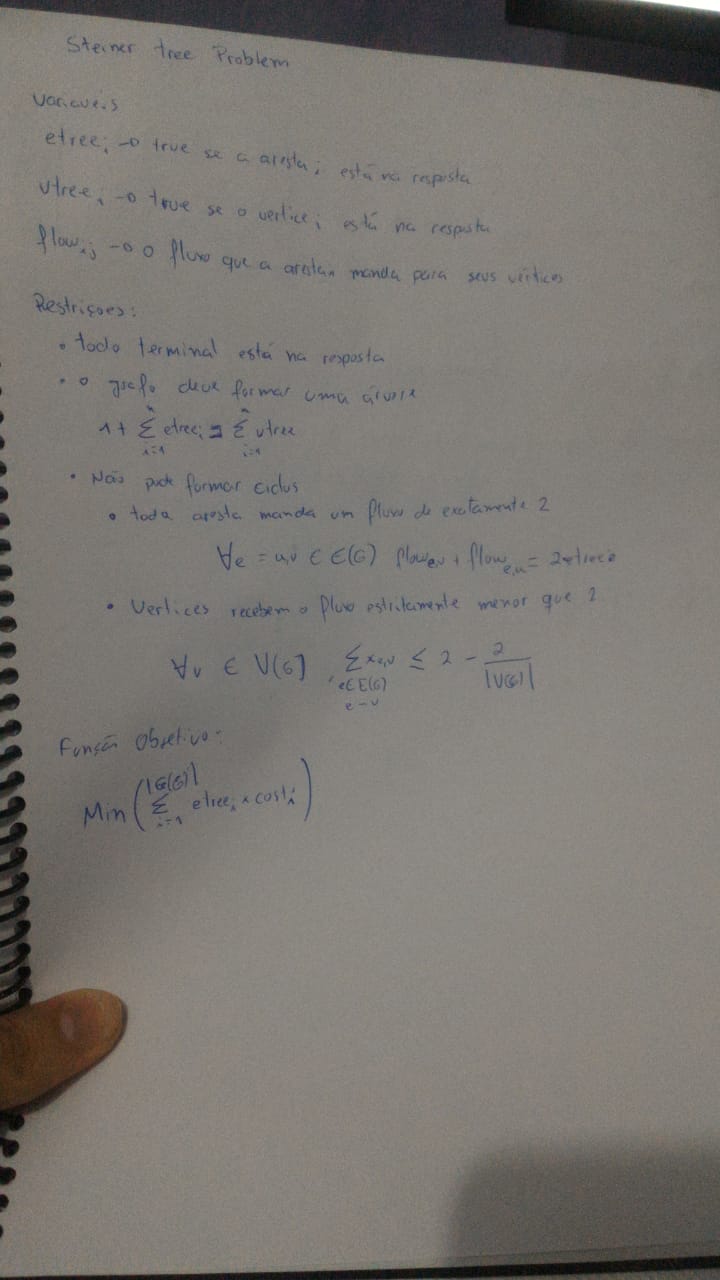 Steiner tree Problem
Variaveis
etree i → true se a aresta i está na resposta
vtree i → true se o vertice i está na resposta
flow i,j → o fluxo que a aresta manda para seus vértices
Restriçoes:
• todo terminal está na resposta
• o grafo deve formar uma árvore
1 + Σ i=1 n etree i = Σ i=1 n vtree
• Não pode formar ciclos
• toda aresta manda um fluxo de exatamente 2
∀e = u,v ∈ E(G) flow e,v + flow e,u = 2 etree e
• Vertices recebem o fluxo estritamente menor que 2
∀v ∈ V(G), Σ x e,v ≤ 2 - 2/|V(G)|
e ∈ E(G)
e-v
Função Objetivo:
Min ( Σ i=1 |E(G)| etree i × cost i )